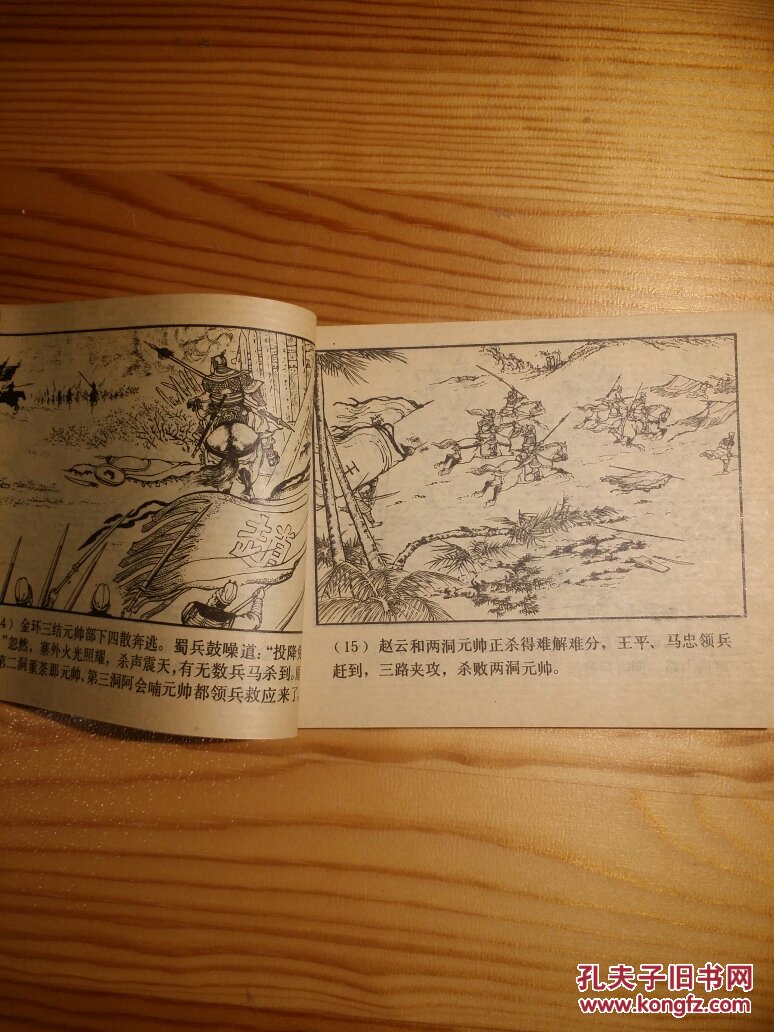 4) 金环三结元帅部下四散奔逃。蜀兵鼓噪道："投降
"忽然，寨外火光照耀，杀声震天，有无数兵马杀到。
第二洞董荼那元帅、第三洞阿会喃元帅都领兵救应来了
(15) 赵云和两洞元帅正杀得难解难分，王平、马忠领兵
赶到，三路夹攻，杀败两洞元帅。
孔夫子旧书网
www.kongfz.com